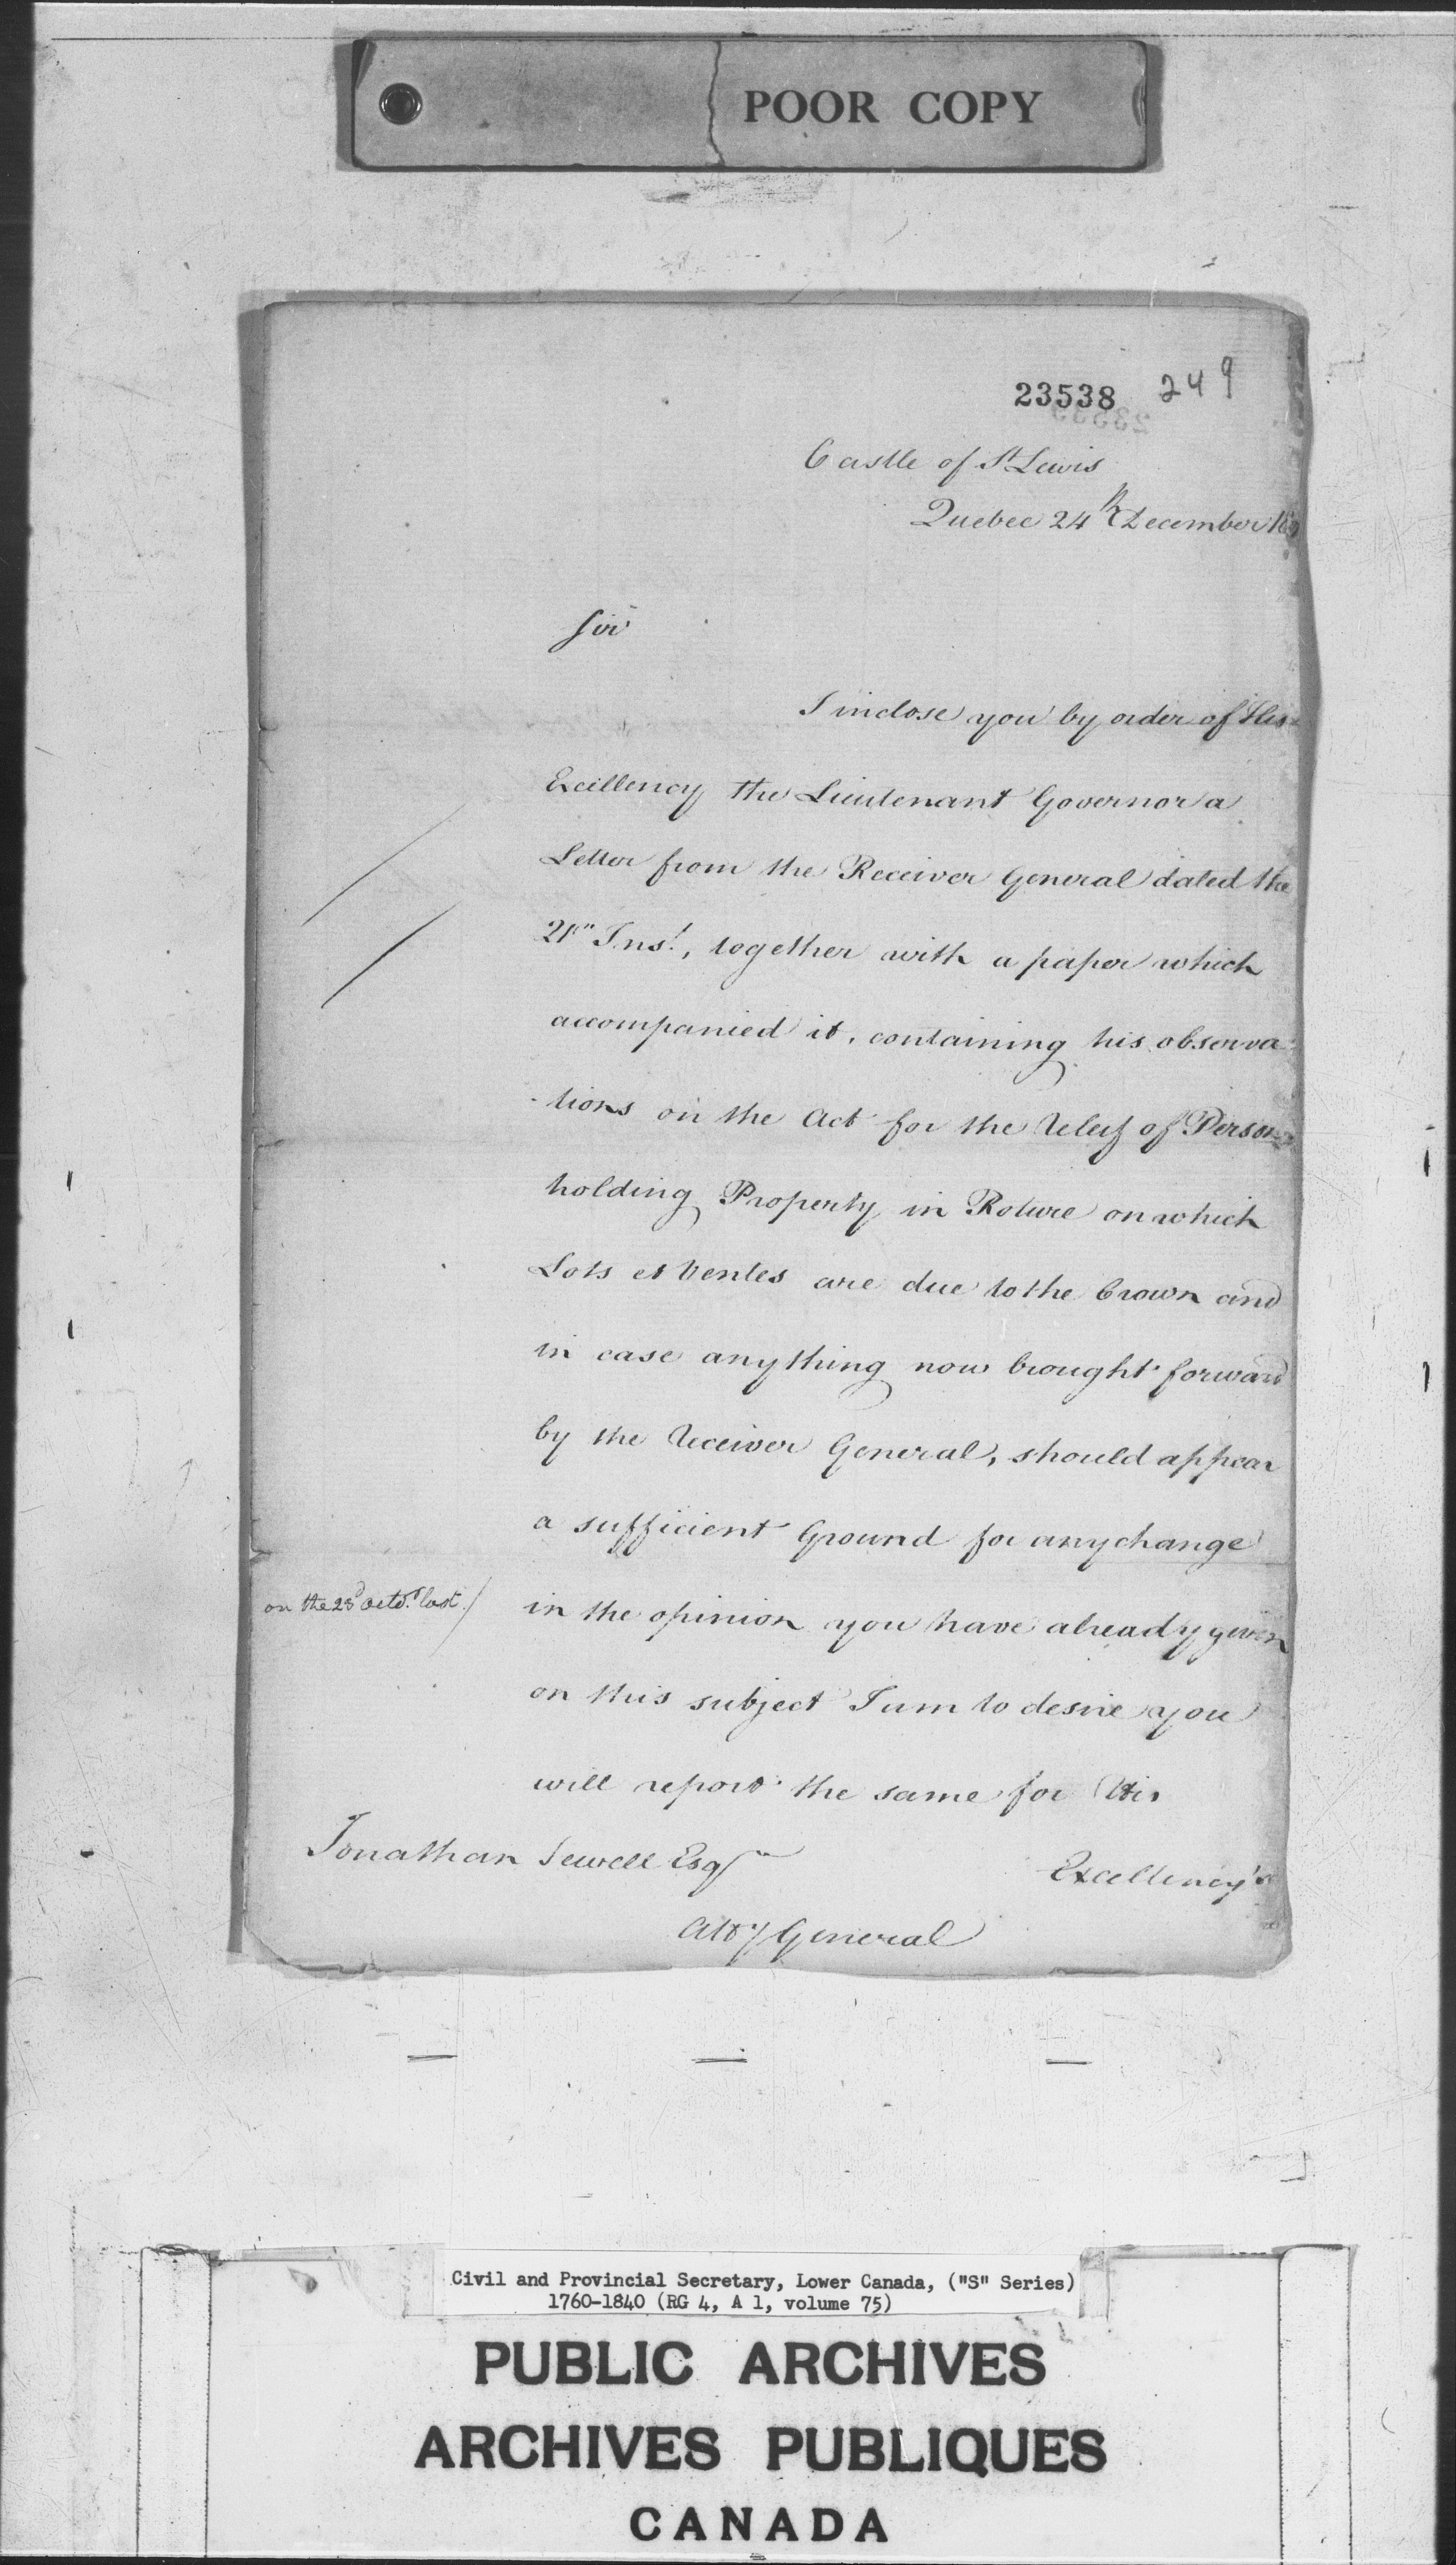 POOR COPY
23538 249
Castle of St Lewis
Quebec 24th December
Sir
I inclose you by order of His
Excellency the Lieutenant Governor a
Letter from the Receiver General dated the
21st Inst., together with a paper which
accompanied it, containing his observa-
-tions on the Act for the releif of Persons
holding Property in Roture on which
Lots et Ventes are due to the Crown and
in case anything now brought forward
by the receiver General, should appear
a sufficient Ground for any change
on the 23d Octr. last /
in the opinion you have already given
on this subject I am to desire you
will report the same for His
Excellency's
Jonathan Sewell Esqr
Atty General
Civil and Provincial Secretary, Lower Canada, ("S" Series)
1760-1840 (RG 4, A 1, volume 75)
PUBLIC ARCHIVES
ARCHIVES PUBLIQUES
CANADA